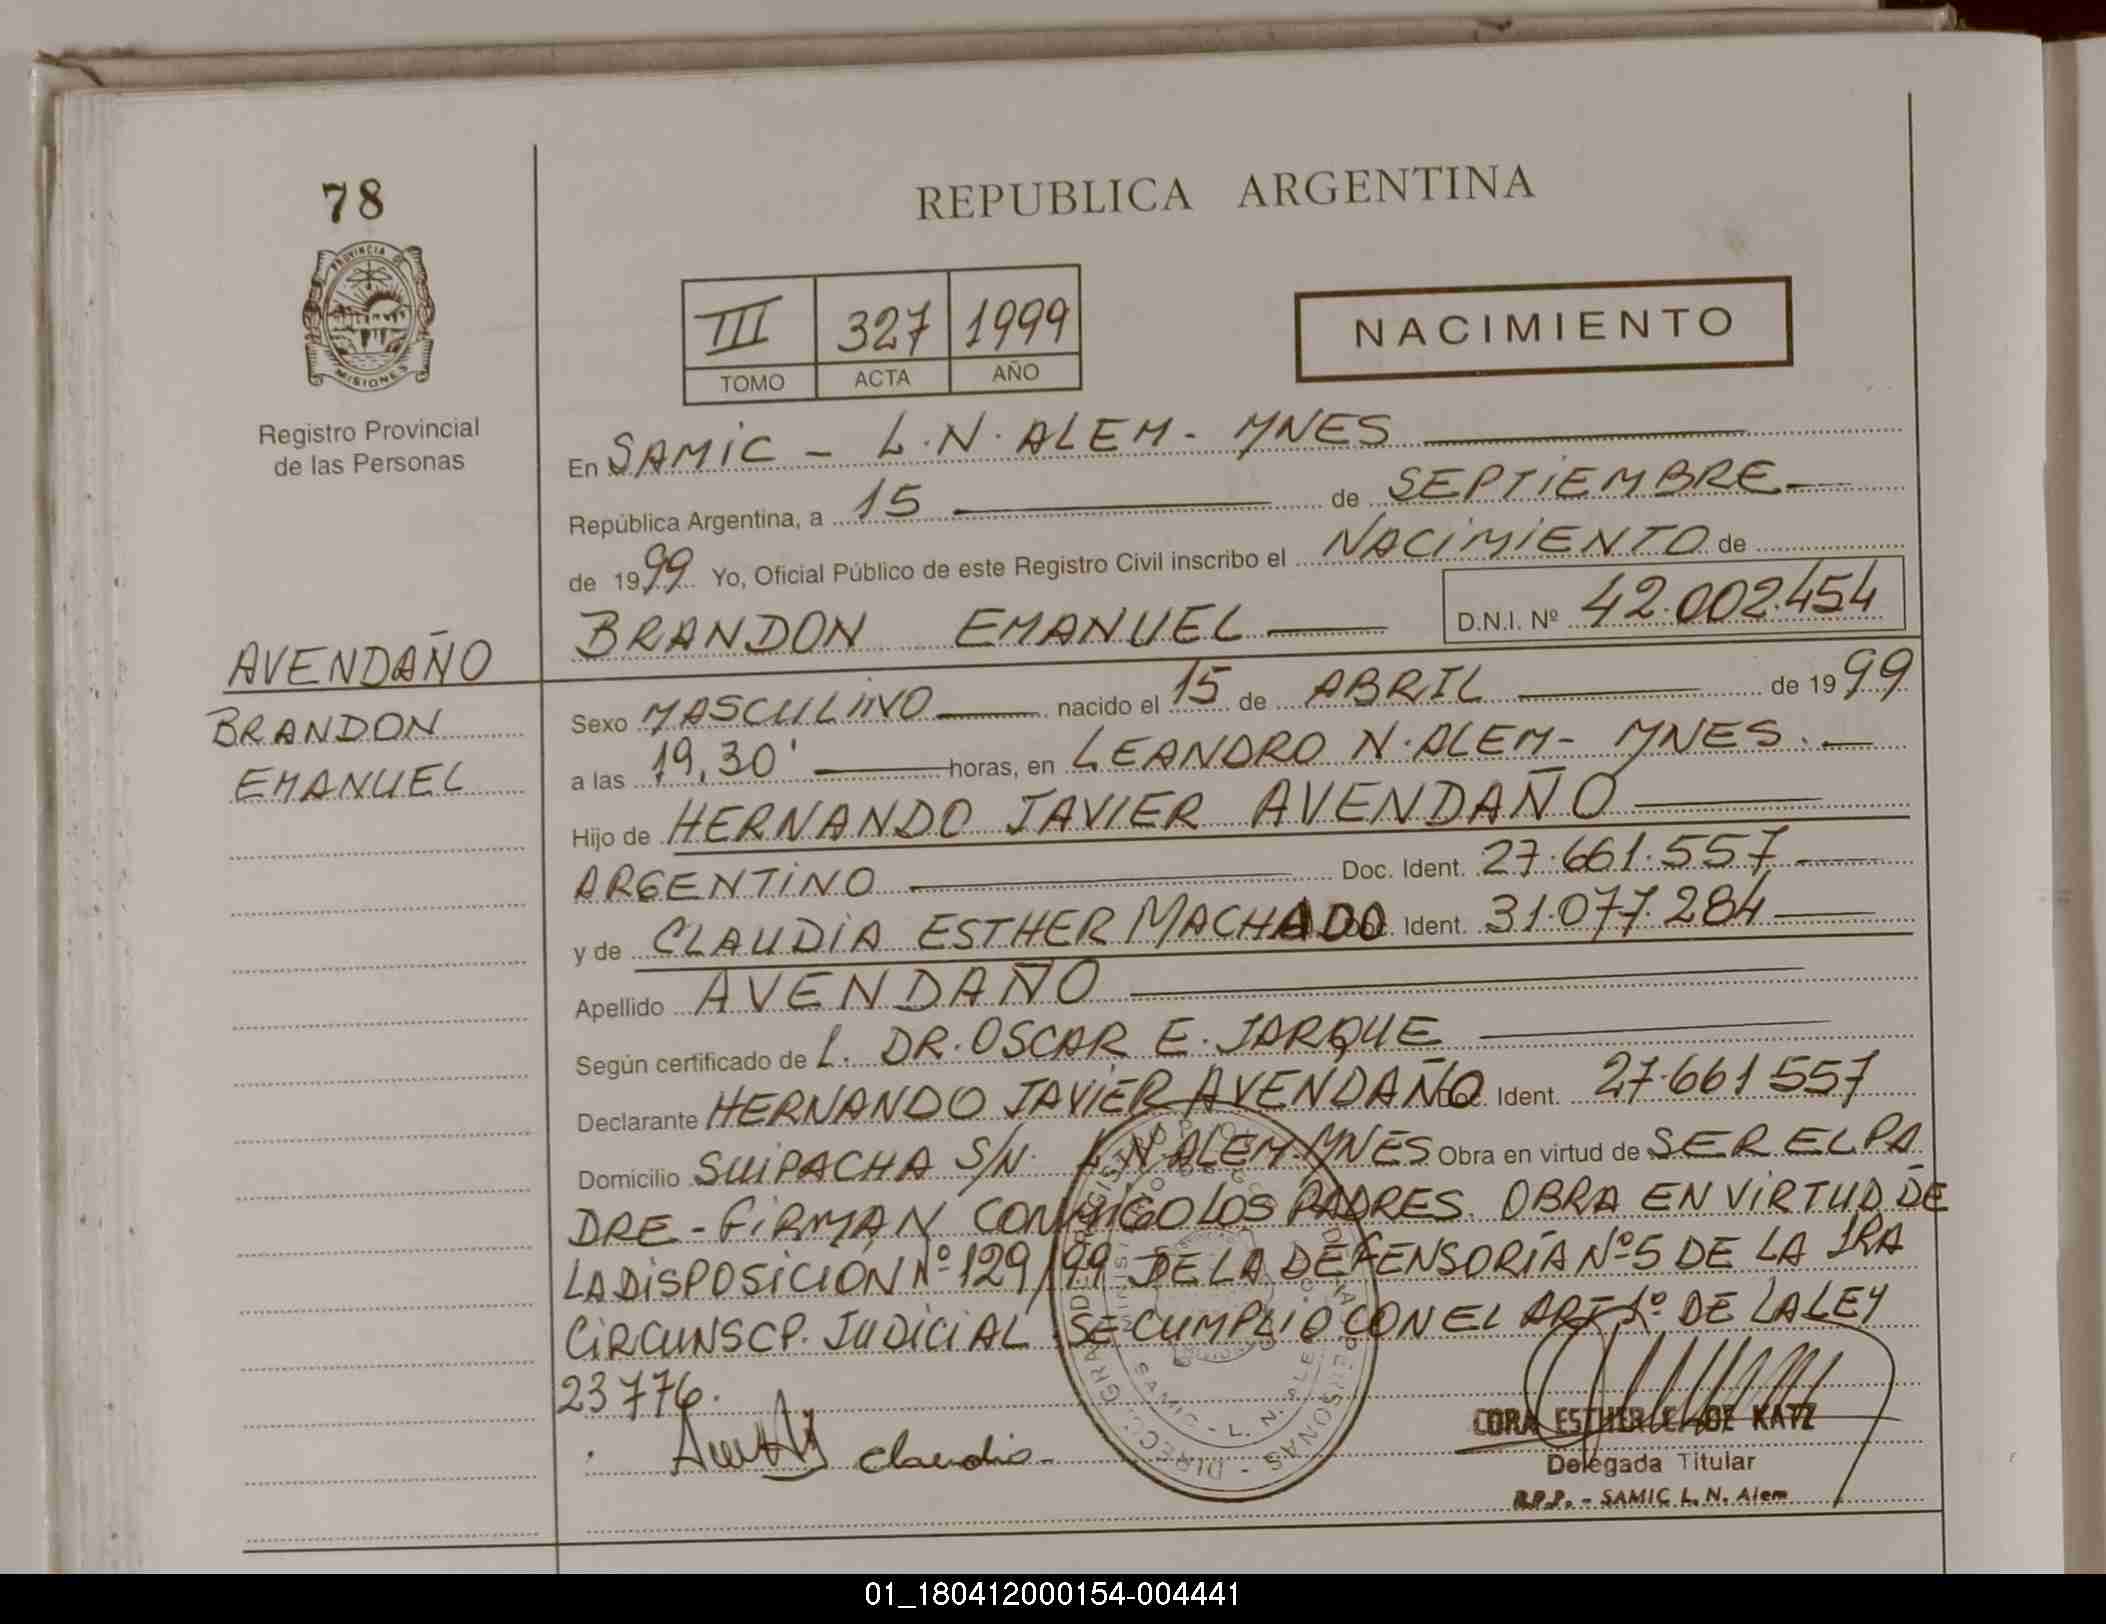 78
REPUBLICA ARGENTINA
PROVINCIA DE
MISIONES
III 327 1999
TOMO ACTA AÑO
NACIMIENTO
Registro Provincial
de las Personas
En SAMIC - L.N. ALEM - MNES
República Argentina, a 15 de SEPTIEMBRE
de 1999 Yo, Oficial Público de este Registro Civil inscribo el NACIMIENTO de
BRANDON EMANUEL D.N.I. Nº 42.002.454
AVENDAÑO
BRANDON
EMANUEL
Sexo MASCULINO nacido el 15 de ABRIL de 1999
a las 19,30' horas, en LEANDRO N. ALEM - MNES.
Hijo de HERNANDO JAVIER AVENDAÑO
ARGENTINO Doc. Ident. 27.661.557
y de CLAUDIA ESTHER MACHADO Doc. Ident. 31.077.284
Apellido AVENDAÑO
Según certificado de L. DR. OSCAR E. JARQUE
Declarante HERNANDO JAVIER AVENDAÑO Doc. Ident. 27.661557
Domicilio SUIPACHA S/N. L.N. ALEM. MNES Obra en virtud de SER EL PA
DRE - FIRMAN CONMIGO LOS PADRES. OBRA EN VIRTUD DE
LA DISPOSICIÓN Nº 129/99 DE LA DEFENSORÍA Nº 5 DE LA 1RA
CIRCUNSCP. JUDICIAL. SE CUMPLIO CON EL ART 1º DE LA LEY
23776.
Claudia
CORA ESTHER DE KATZ
Delegada Titular
R.P.P. - SAMIC L. N. Alem
SAMIC - L. N. ALE
01_180412000154-004441